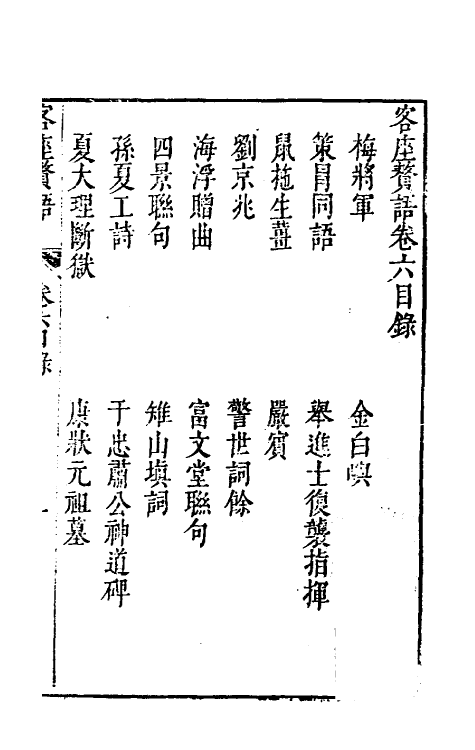 客座贅語卷六目錄
梅將軍　金白嶼
策冐同語　舉進士復襲指揮
鼠拖生薑　嚴賓
劉京兆　警世詞餘
海浮贈曲　富文堂聯句
四景聯句　雉山填詞
孫夏工詩　于忠肅公神道碑
夏大理斷獄　康狀元祖墓
客座贅語　卷六目錄　一